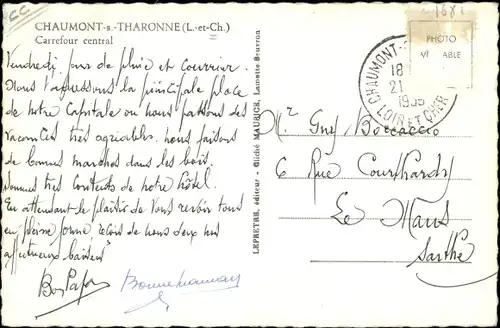 CHAUMONT-s.-THARONNE (L.-et-Ch.)
Carrefour central
Vendredi jour de pluie et courrier.
Nous t'adressons la principale place
de notre Capitale ou nous passons des
vacances très agréables. nous faisons
de bonnes marches dans les bois.
sommes très contents de notre hôtel.
En attendant le plaisir de vous revoir tous
en pleine forme reçois de nous deux nos
affectueux baisers
Bon Papa
Bonne maman
LEPRETRE, éditeur - Cliché MAURICE, Lamotte-Beuvron
PHOTO
CHAUMONT-S-
18
21
LOIR ET CHER
Mr Guy Boccaccio
6 Rue Courthardy
Le Mans
Sarthe